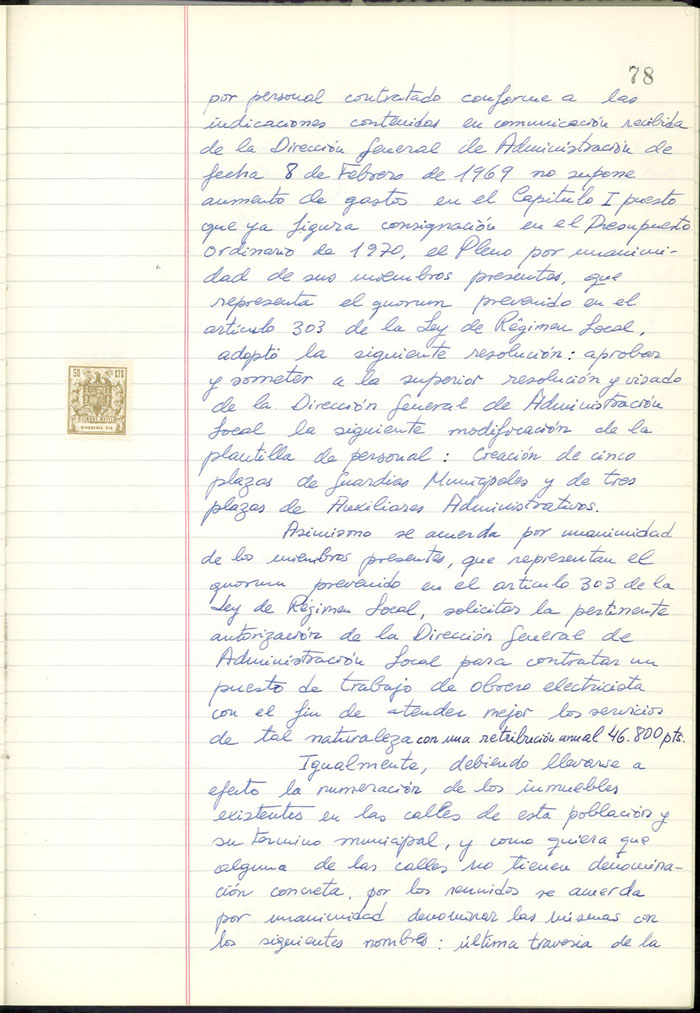 78
por personal contratado conforme a las
indicaciones contenidas en comunicación recibida
de la Dirección General de Administración de
fecha 8 de Febrero de 1969 no supone
aumento de gastos en el Capitulo I puesto
que ya figura consignación en el Presupuesto
Ordinario de 1970, el Pleno por unanimi-
dad de sus miembros presentes, que
representa el quorum prevenido en el
artículo 303 de la Ley de Régimen Local,
adoptó la siguiente resolución: aprobar
y someter a la superior resolución y visado
de la Dirección General de Administración
Local la siguiente modificación de la
plantilla de personal: Creación de cinco
plazas de Guardias Municipales y de tres
plazas de Auxiliares Administrativos.
Asimismo se acuerda por unanimidad
de los miembros presentes, que representan el
quorum prevenido en el artículo 303 de la
Ley de Régimen Local, solicitar la pertinente
autorización de la Dirección General de
Administración Local para contratar un
puesto de trabajo de obrero electricista
con el fin de atender mejor los servicios
de tal naturaleza con una retribución anual 46.800 pts.
Igualmente, debiendo llevarse a
efecto la numeración de los inmuebles
existentes en las calles de esta población y
su termino municipal, y como quiera que
alguna de las calles no tienen denomina-
ción concreta, por los reunidos se acuerda
por unanimidad denominar las mismas con
los siguientes nombres: última travesia de la
50 CTS